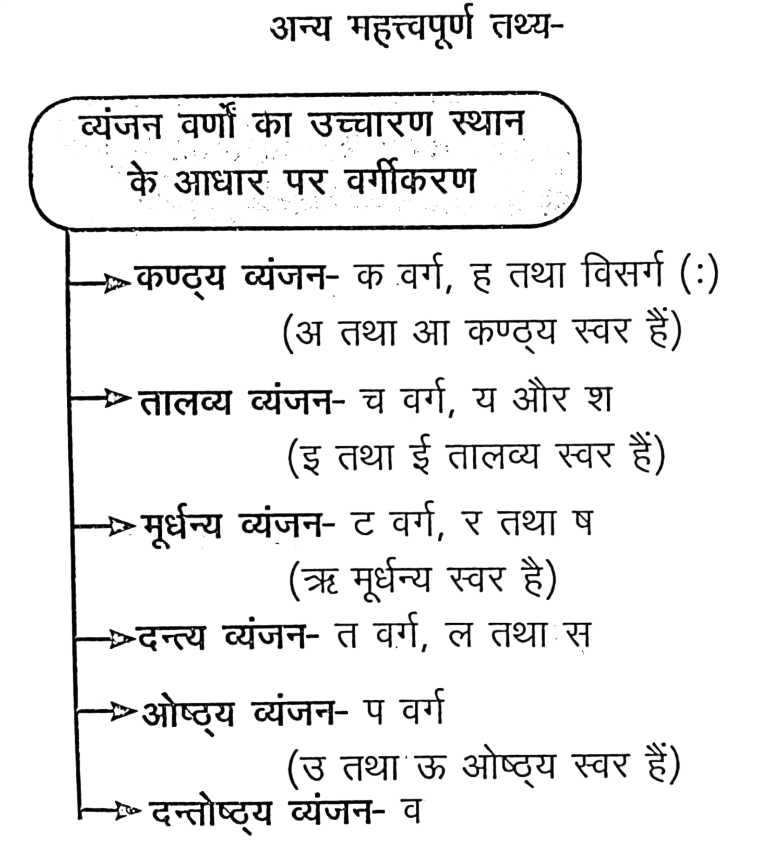 अन्य महत्त्वपूर्ण तथ्य-
व्यंजन वर्णों का उच्चारण स्थान
के आधार पर वर्गीकरण
कण्ठ्य व्यंजन- क वर्ग, ह तथा विसर्ग (:)
(अ तथा आ कण्ठ्य स्वर हैं)
तालव्य व्यंजन- च वर्ग, य और श
(इ तथा ई तालव्य स्वर हैं)
मूर्धन्य व्यंजन- ट वर्ग, र तथा ष
(ऋ मूर्धन्य स्वर है)
दन्त्य व्यंजन- त वर्ग, ल तथा स
ओष्ठ्य व्यंजन- प वर्ग
(उ तथा ऊ ओष्ठ्य स्वर हैं)
दन्तोष्ठ्य व्यंजन- व